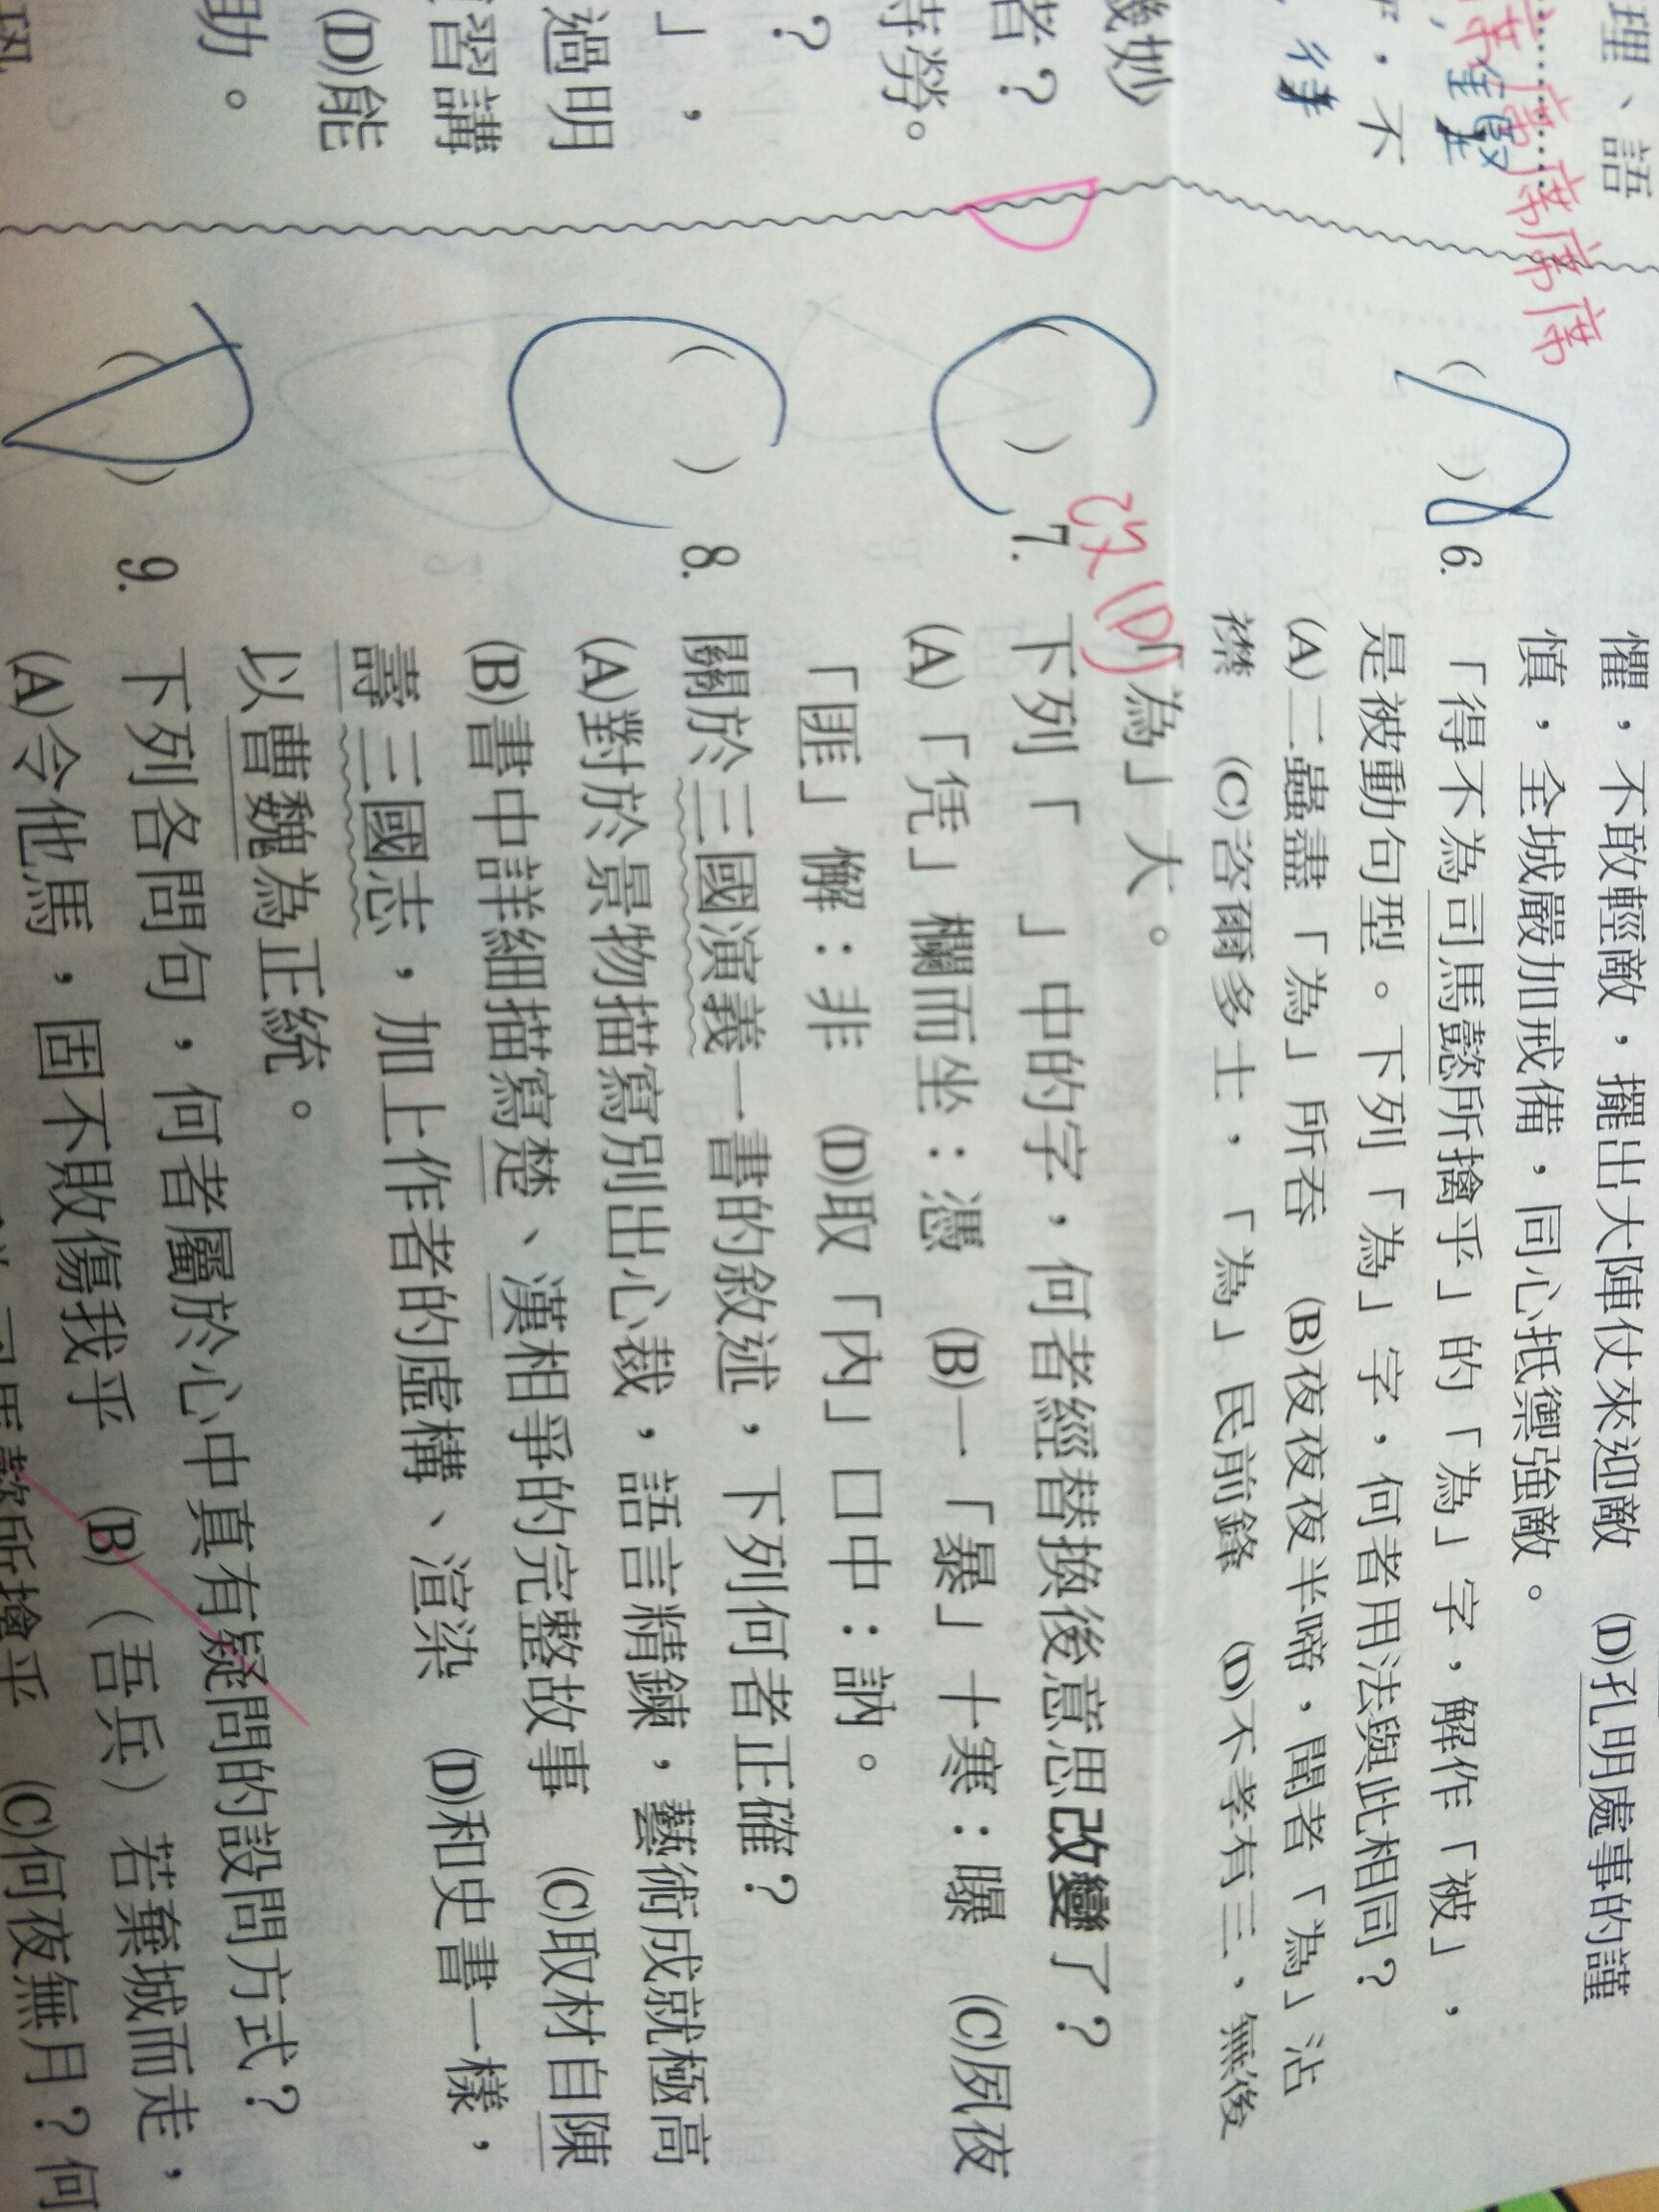 理、語
，不
，得
機妙
者？
待勞。
？
」，
過明
習講
(D)能
助。
懼，不敢輕敵，擺出大陣仗來迎敵　(D)孔明處事的謹
慎，全城嚴加戒備，同心抵禦強敵。
( )6.「得不為司馬懿所擒乎」的「為」字，解作「被」，
是被動句型。下列「為」字，何者用法與此相同？
(A)二蟲盡「為」所吞　(B)夜夜夜半啼，聞者「為」沾
襟　(C)咨爾多士，「為」民前鋒　(D)不孝有三，無後
「為」大。
改(D)
C ( )7.下列「　」中的字，何者經替換後意思改變了？
(A)「凭」欄而坐：憑　(B)一「暴」十寒：曝　(C)夙夜
「匪」懈：非　(D)取「內」口中：訥。
C ( )8.關於三國演義一書的敘述，下列何者正確？
(A)對於景物描寫別出心裁，語言精鍊，藝術成就極高
(B)書中詳細描寫楚、漢相爭的完整故事　(C)取材自陳
壽三國志，加上作者的虛構、渲染　(D)和史書一樣，
以曹魏為正統。
D ( )9.下列各問句，何者屬於心中真有疑問的設問方式？
(A)令他馬，固不敗傷我乎　(B)（吾兵）若棄城而走，
所擒乎　(C)何夜無月？何